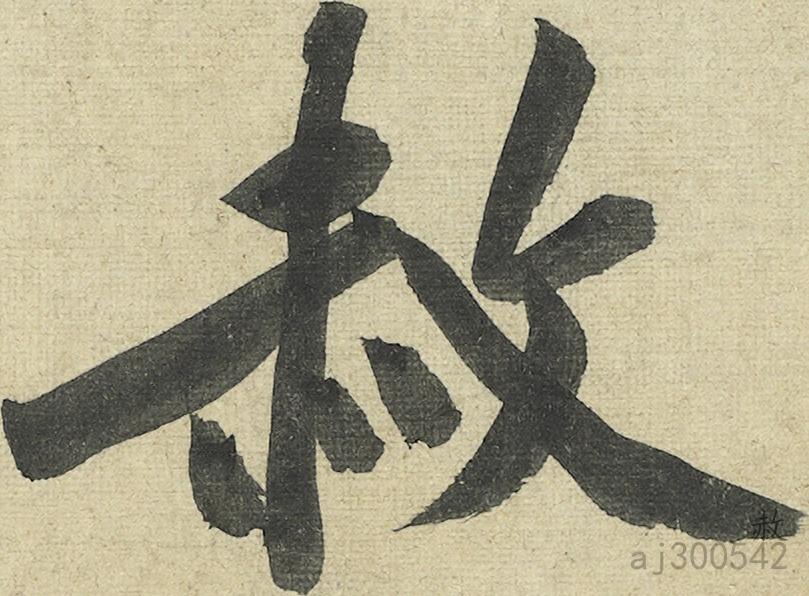 赦
赦
aj300542